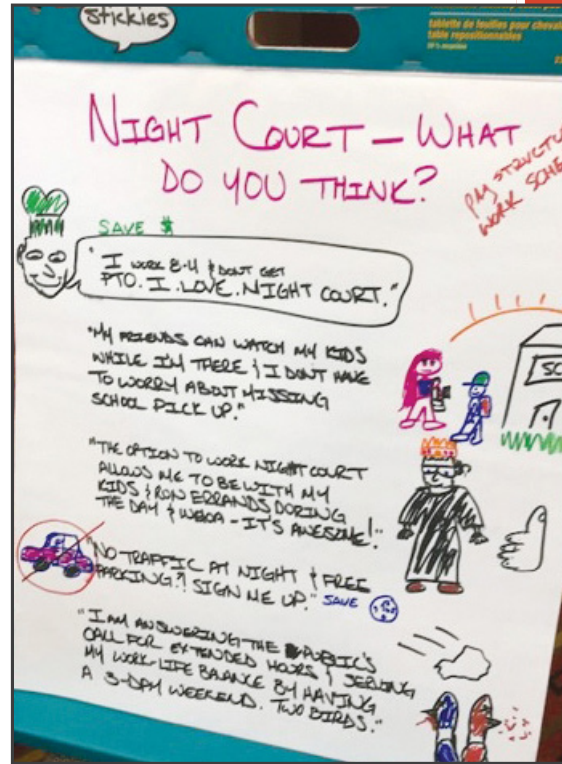 stickies
tablette de feuilles pour cheval
table repositionnables
NIGHT COURT – WHAT
DO YOU THINK?
PAY STRUCTU
WORK SCHE
SAVE $
"I WORK 8-4 & DONT GET
PTO. I. LOVE. NIGHT COURT."
"MY FRIENDS CAN WATCH MY KIDS
WHILE I'M THERE & I DONT HAVE
TO WORRY ABOUT MISSING
SCHOOL PICK UP."
SC
"THE OPTION TO WORK NIGHT COURT
ALLOWS ME TO BE WITH MY
KIDS & RUN ERRANDS DURING
THE DAY & - IT'S AWESOME!"
"NO TRAFFIC AT NIGHT & FREE
PARKING?! SIGN ME UP." SAVE
"I AM ANSWERING THE PUBLIC'S
CALL FOR EXTENDED HOURS & SERVING
MY WORK-LIFE BALANCE BY HAVING
A 3-DAY WEEKEND. TWO BIRDS."